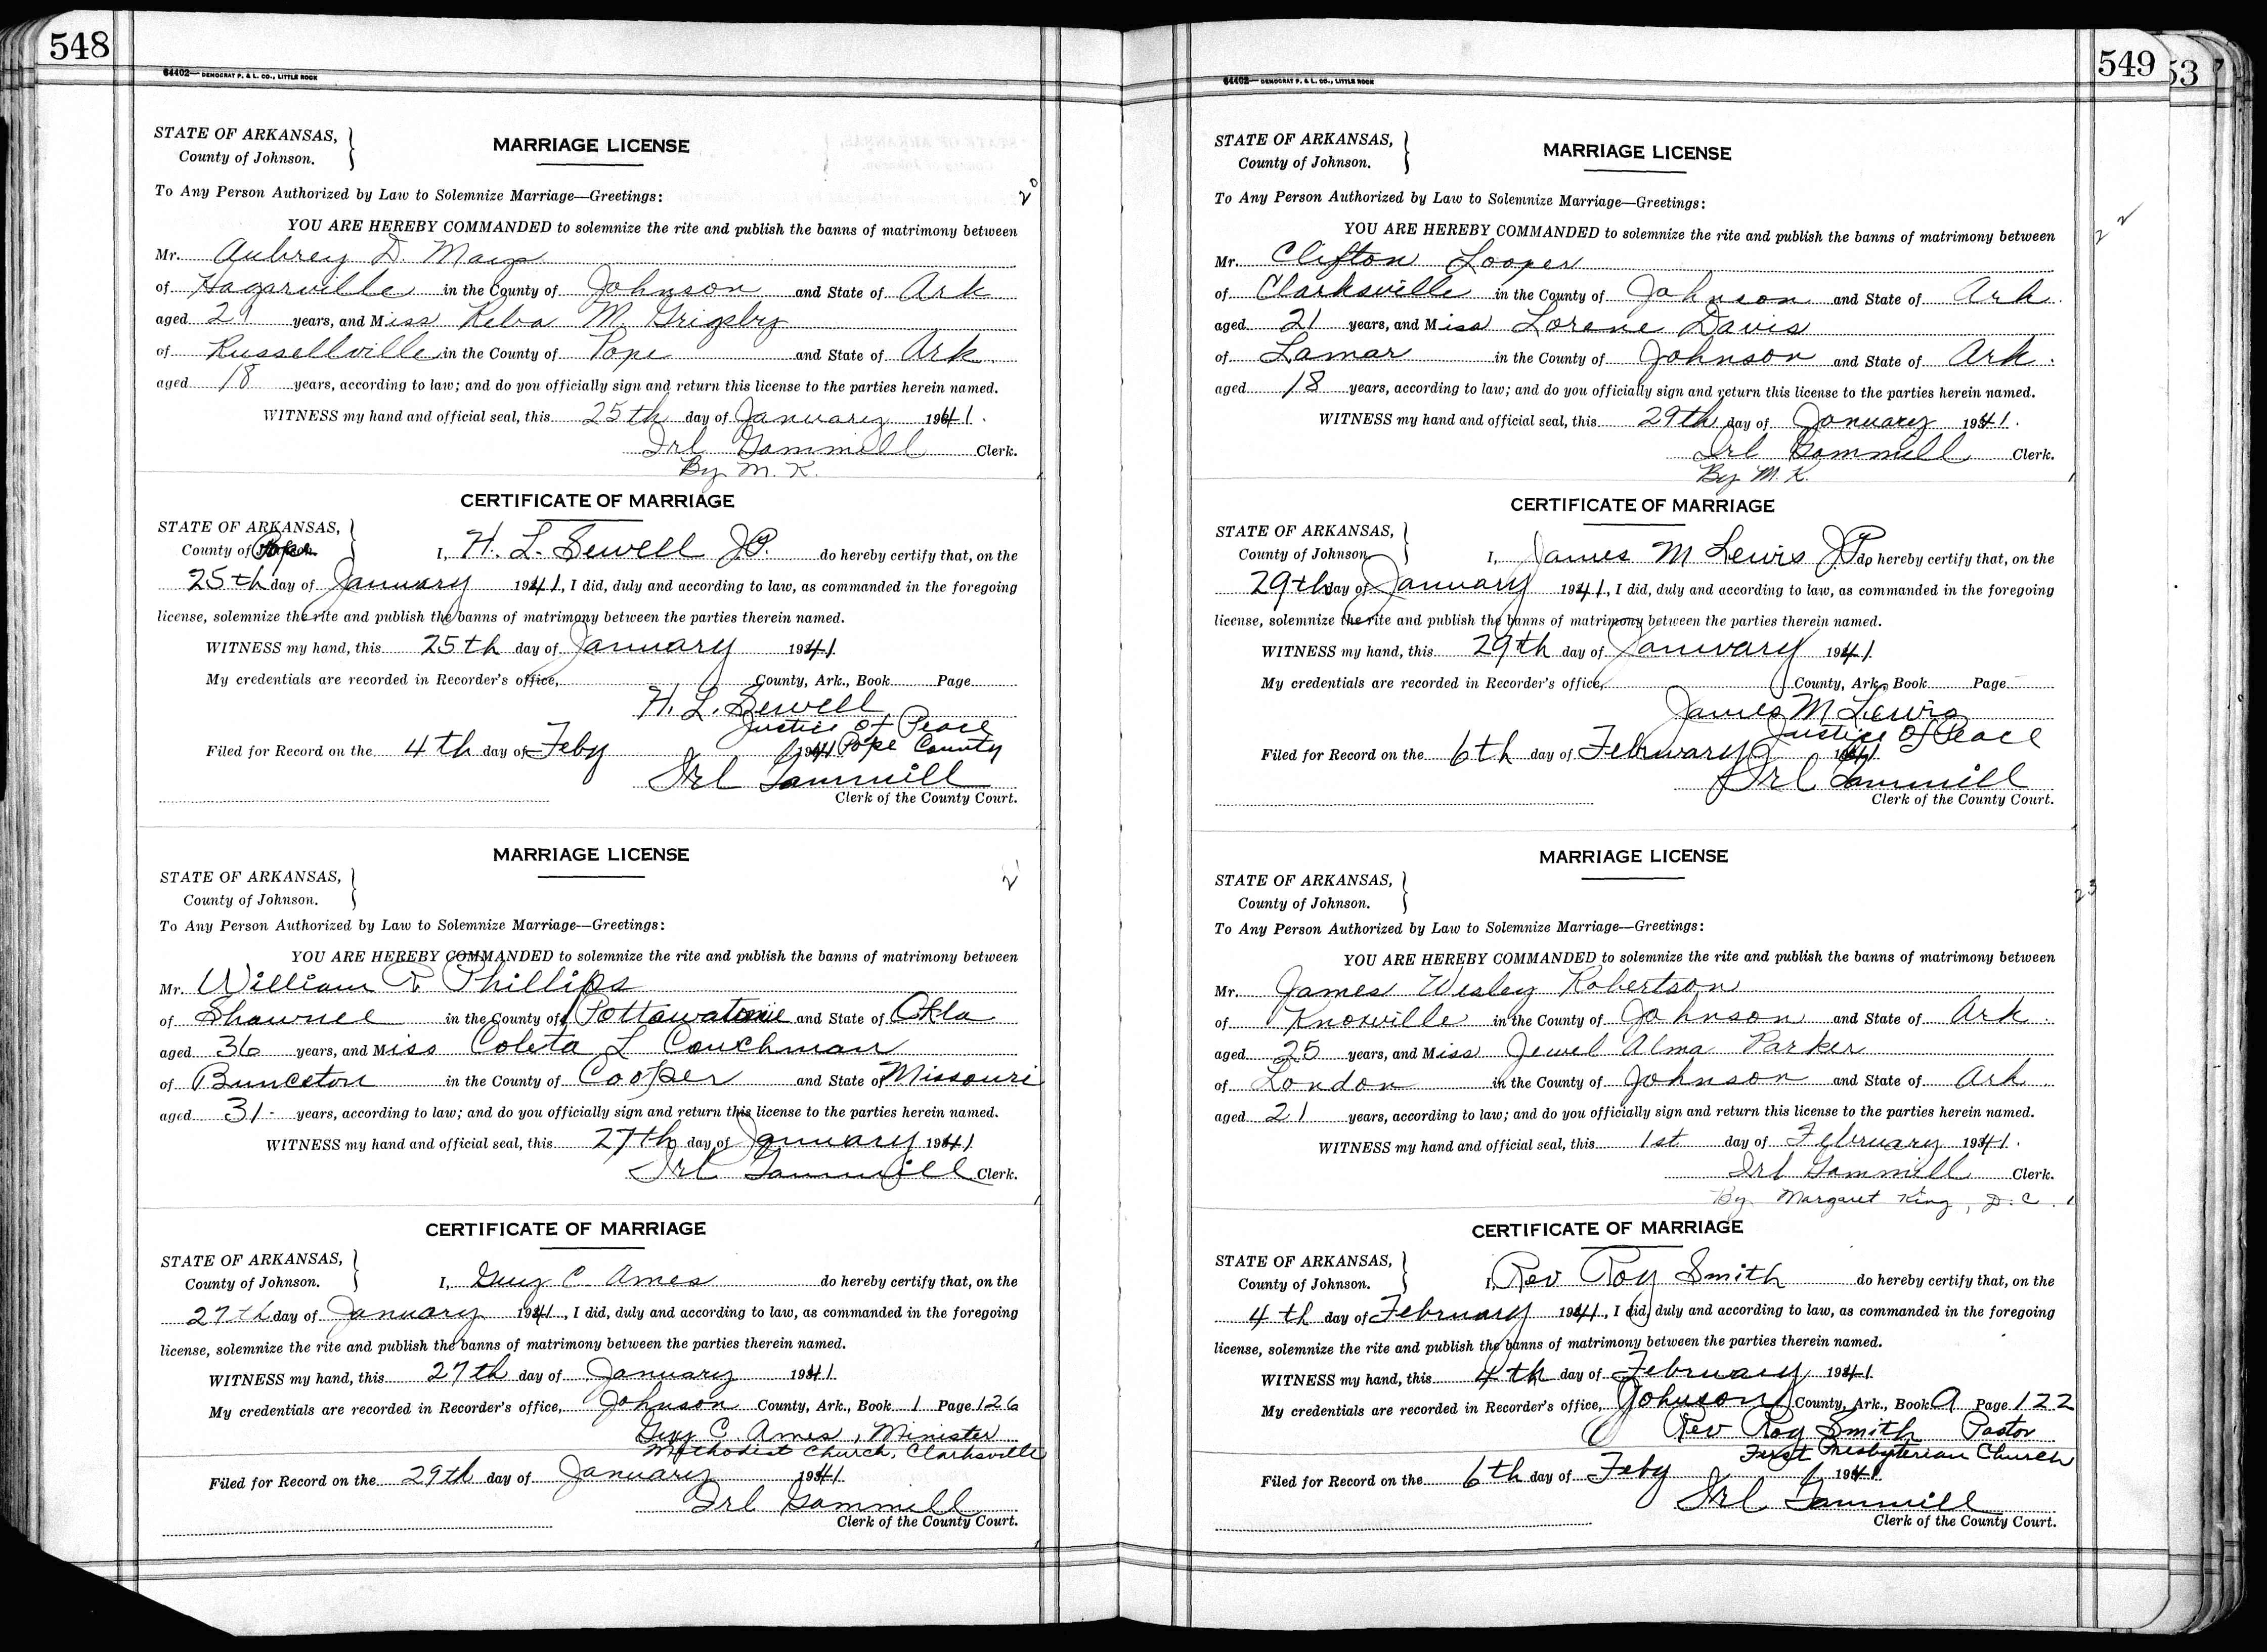 548
64402— DEMOCRAT P. & L. CO., LITTLE ROCK
STATE OF ARKANSAS,
County of Johnson.
MARRIAGE LICENSE
20
To Any Person Authorized by Law to Solemnize Marriage—Greetings:
YOU ARE HEREBY COMMANDED to solemnize the rite and publish the banns of matrimony between
Mr. Aubrey D. Mays
of Hagarville in the County of Johnson and State of Ark
aged 21 years, and Miss Reba M. Grigsby
of Russellville in the County of Pope and State of Ark.
aged 18 years, according to law; and do you officially sign and return this license to the parties herein named.
WITNESS my hand and official seal, this 25th day of January 1941.
Irl Gammill Clerk.
By M. K.
CERTIFICATE OF MARRIAGE
STATE OF ARKANSAS,
County of
I, H. L. Sewell J.P. do hereby certify that, on the
25th day of January 1941, I did, duly and according to law, as commanded in the foregoing
license, solemnize the rite and publish the banns of matrimony between the parties therein named.
WITNESS my hand, this 25th day of January 1941
My credentials are recorded in Recorder's office, County, Ark., Book Page
H. L. Sewell
Justice of Peace
Filed for Record on the 4th day of Feby 1941 Pope County
Irl Gammill
Clerk of the County Court.
MARRIAGE LICENSE
STATE OF ARKANSAS,
County of Johnson.
21
To Any Person Authorized by Law to Solemnize Marriage—Greetings:
YOU ARE HEREBY COMMANDED to solemnize the rite and publish the banns of matrimony between
Mr. William R Phillips
of Shawnee in the County of Pottawatomie and State of Okla
aged 36 years, and Miss Coleta L Couchman
of Bunceton in the County of Cooper and State of Missouri
aged 31 years, according to law; and do you officially sign and return this license to the parties herein named.
WITNESS my hand and official seal, this 27th day of January 1941
Irl Gammill Clerk.
CERTIFICATE OF MARRIAGE
STATE OF ARKANSAS,
County of Johnson.
I, Guy C. Ames do hereby certify that, on the
27th day of January 1941, I did, duly and according to law, as commanded in the foregoing
license, solemnize the rite and publish the banns of matrimony between the parties therein named.
WITNESS my hand, this 27th day of January 1941
My credentials are recorded in Recorder's office, Johnson County, Ark., Book 1 Page 126
Guy C. Ames, Minister
Methodist Church, Clarksville
Filed for Record on the 29th day of January 1941
Irl Gammill
Clerk of the County Court.
549
53
64402— DEMOCRAT P. & L. CO., LITTLE ROCK
STATE OF ARKANSAS,
County of Johnson.
MARRIAGE LICENSE
22
To Any Person Authorized by Law to Solemnize Marriage—Greetings:
YOU ARE HEREBY COMMANDED to solemnize the rite and publish the banns of matrimony between
Mr. Clifton Looper
of Clarksville in the County of Johnson and State of Ark.
aged 21 years, and Miss Lorene Davis
of Lamar in the County of Johnson and State of Ark.
aged 18 years, according to law; and do you officially sign and return this license to the parties herein named.
WITNESS my hand and official seal, this 29th day of January 1941.
Irl Gammill Clerk.
By M. K.
CERTIFICATE OF MARRIAGE
STATE OF ARKANSAS,
County of Johnson
I, James M Lewis J.P. do hereby certify that, on the
29th day of January 1941, I did, duly and according to law, as commanded in the foregoing
license, solemnize the rite and publish the banns of matrimony between the parties therein named.
WITNESS my hand, this 29th day of January 1941
My credentials are recorded in Recorder's office, County, Ark., Book Page
James M Lewis
Justice of Peace
Filed for Record on the 6th day of February 1941
Irl Gammill
Clerk of the County Court.
MARRIAGE LICENSE
STATE OF ARKANSAS,
County of Johnson.
23
To Any Person Authorized by Law to Solemnize Marriage—Greetings:
YOU ARE HEREBY COMMANDED to solemnize the rite and publish the banns of matrimony between
Mr. James Wesley Robertson
of Knoxville in the County of Johnson and State of Ark.
aged 25 years, and Miss Jewel Alma Parker
of London in the County of Johnson and State of Ark
aged 21 years, according to law; and do you officially sign and return this license to the parties herein named.
WITNESS my hand and official seal, this 1st day of February 1941.
Irl Gammill Clerk.
By Margaret King, D.C.
CERTIFICATE OF MARRIAGE
STATE OF ARKANSAS,
County of Johnson.
I, Rev Roy Smith do hereby certify that, on the
4th day of February 1941, I did, duly and according to law, as commanded in the foregoing
license, solemnize the rite and publish the banns of matrimony between the parties therein named.
WITNESS my hand, this 4th day of February 1941
My credentials are recorded in Recorder's office, Johnson County, Ark., Book A Page 122
Rev Roy Smith Pastor
First Presbyterian Church
Filed for Record on the 6th day of Feby 1941
Irl Gammill
Clerk of the County Court.